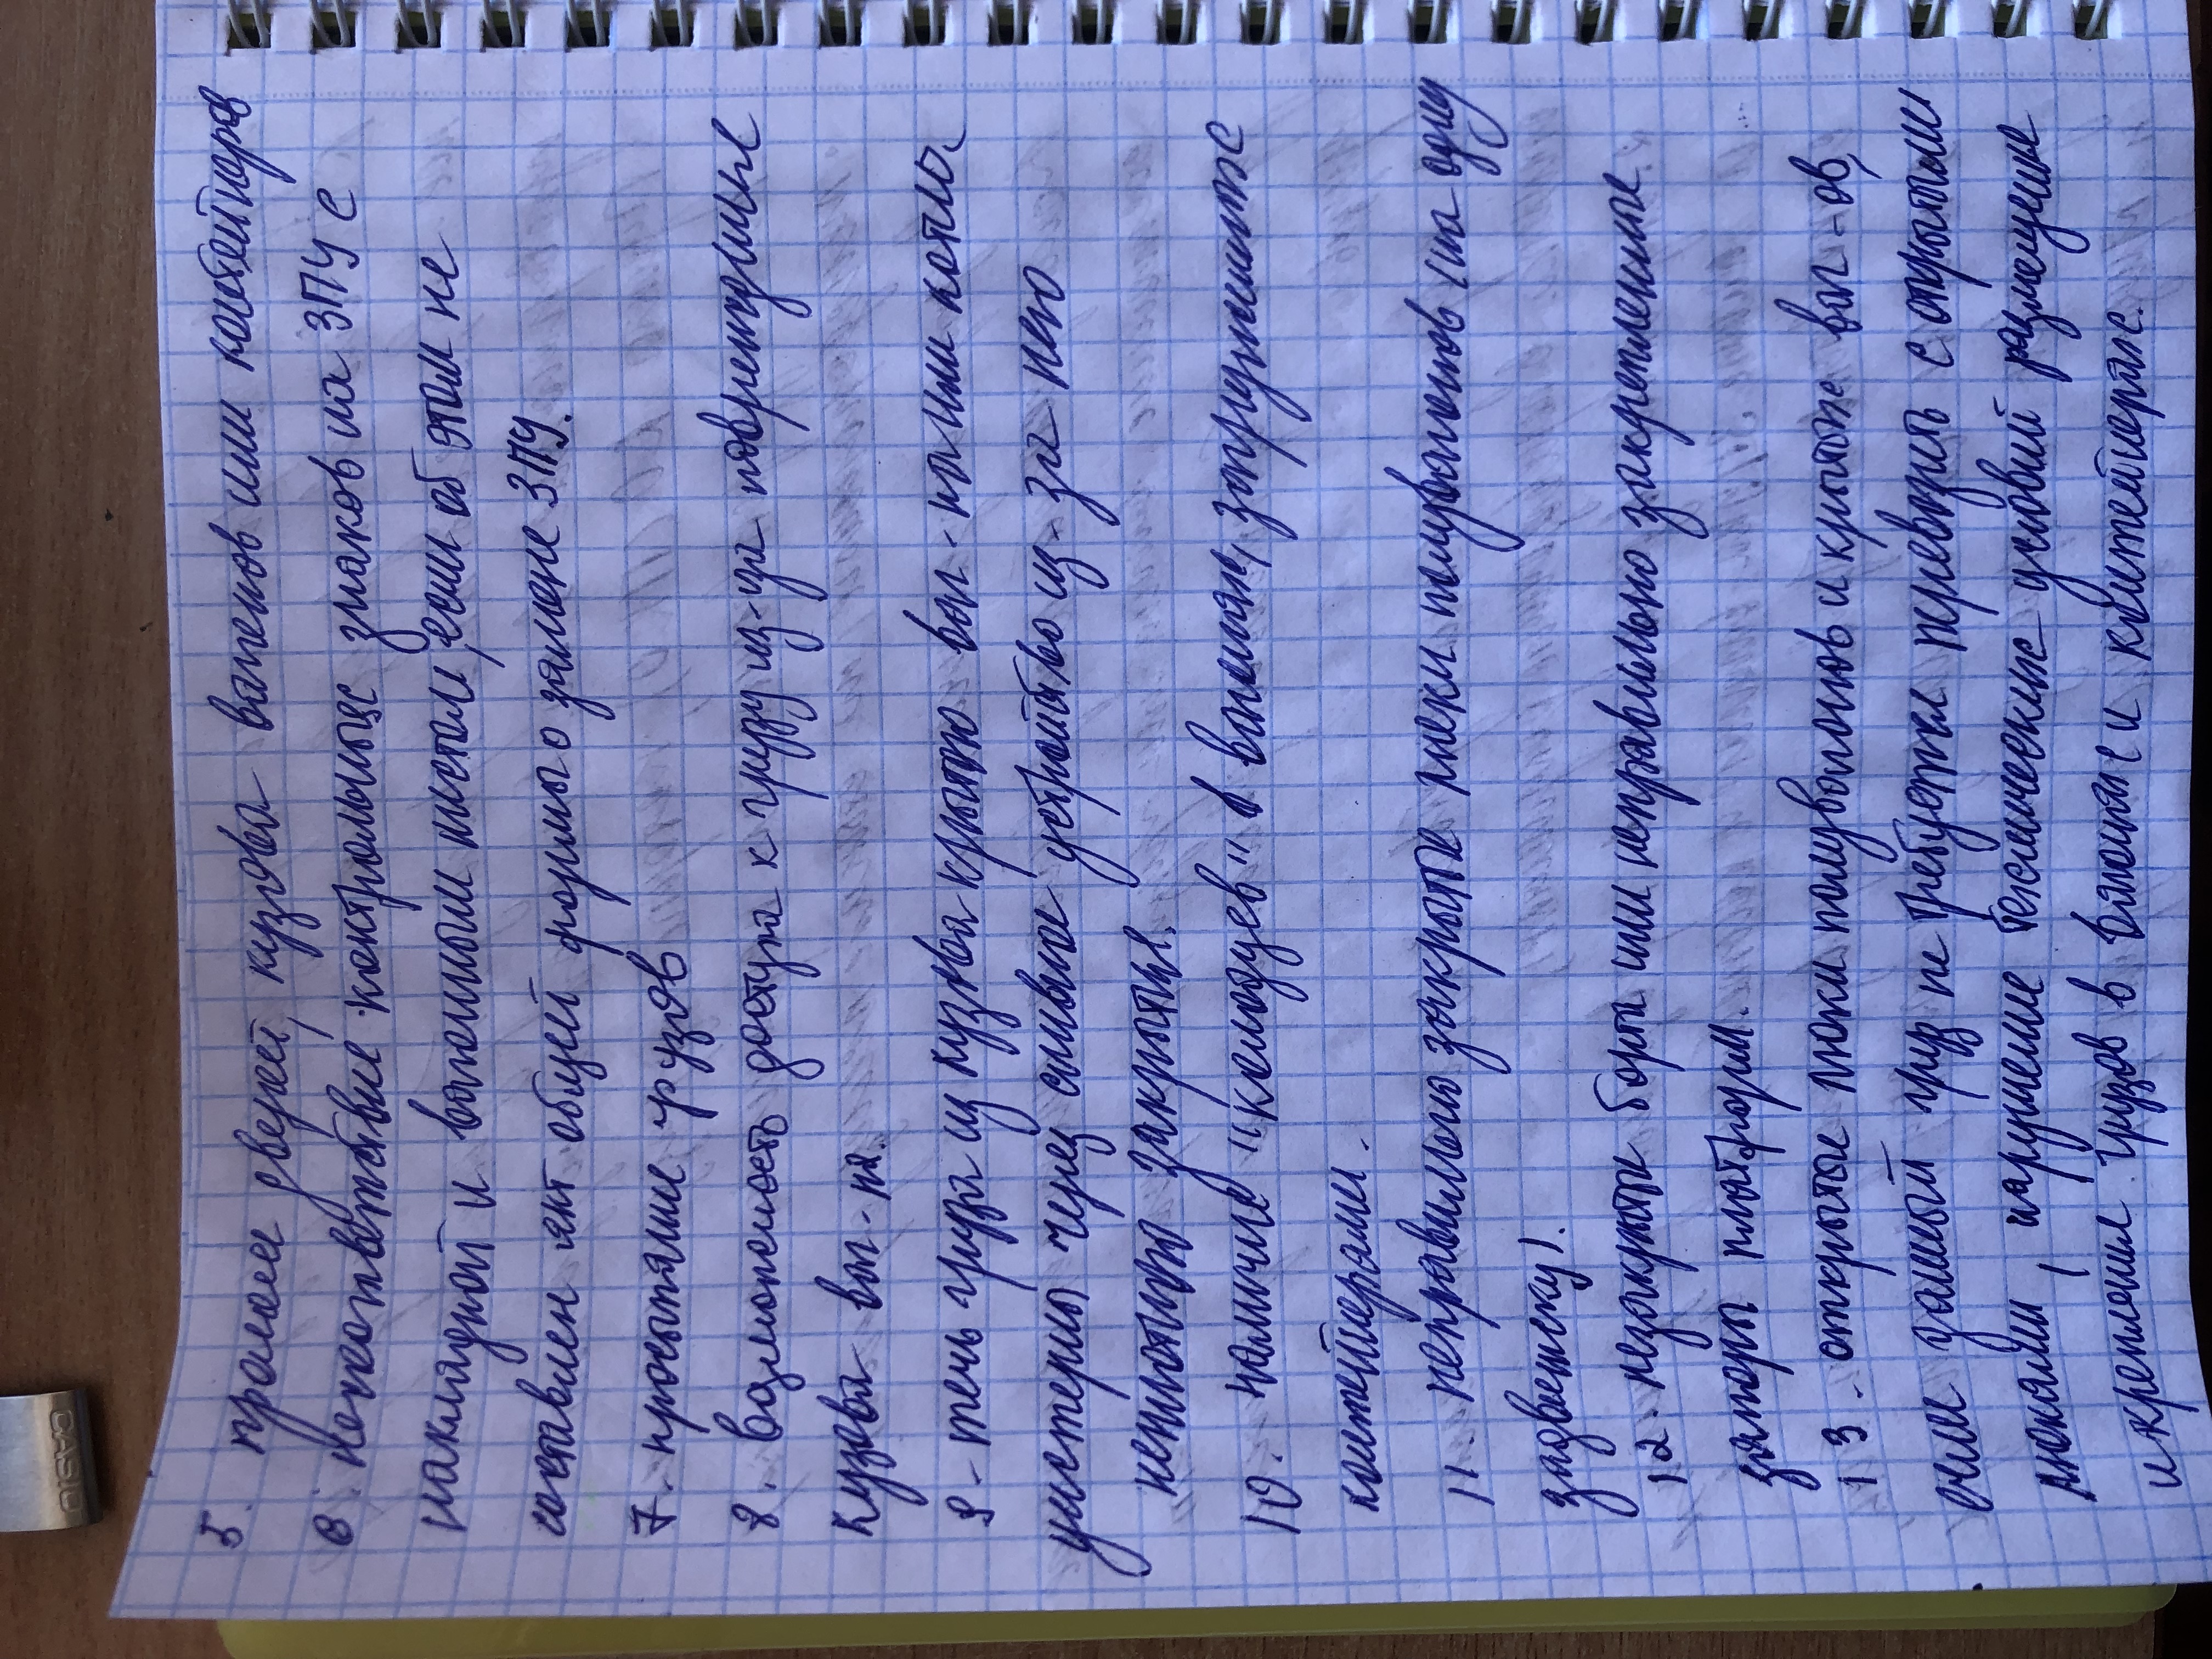 5. пролом дверей, кузова вагонов или контейнеров
6. несоответствие контрольных знаков на ЗПУ с
накладной и вагонным листом, если об этом не
составлен акт общей формы о замене ЗПУ.
7. просыпание грузов
8. возможность доступа к грузу из-за повреждения
кузова ваг-на.
9. течь груза из кузова крытого ваг-на или котла
цистерны через сливное устройство из-за его
неплотного закрытия.
10. наличие "колодцев" в вагонах, загруженных
контейнерами.
11. неправильно закрыты люки полувагонов (на одну
задвижку).
12. незакрытые борта или неправильно закрепленные
запоры платформ.
13. открытые люки полувагонов и крытых ваг-ов,
если данный груз не требуется перевозить с открытыми
люками, нарушение технических условий размещения
и крепления грузов в вагонах и контейнерах.
CASIO